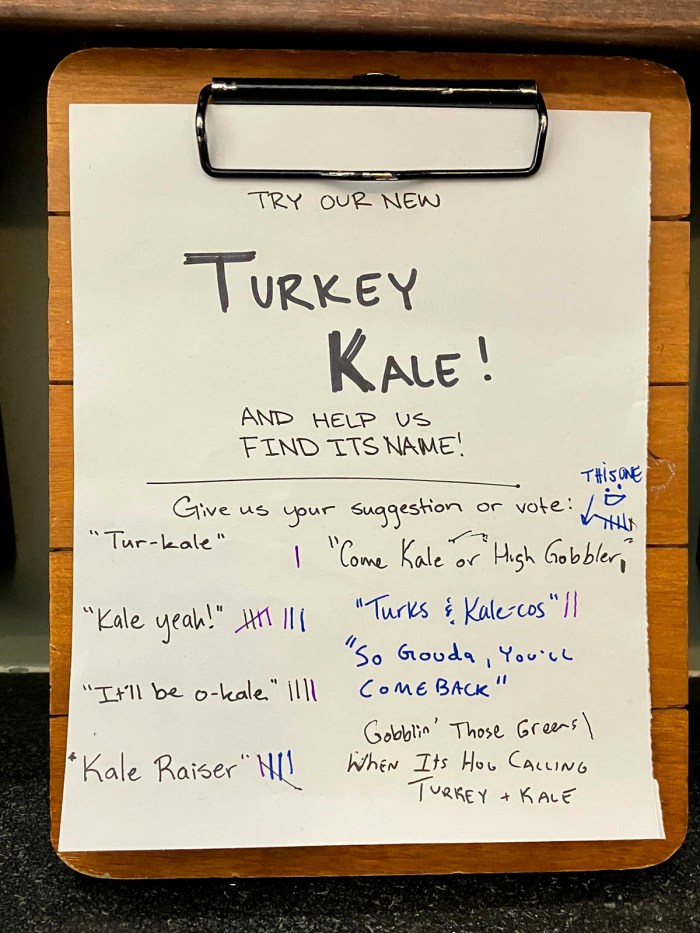 TRY OUR NEW
TURKEY
KALE!
AND HELP US
FIND ITS NAME!
THIS ONE
Give us your suggestion or vote:
"Tur-kale"
"Come Kale or High Gobbler"
"Kale yeah!"
"Turks & Kale-cos"
"So Gouda, You'll
COME BACK"
"It'll be o-kale"
"Kale Raiser"
Gobblin' Those Greens
WHEN Its CALLING
TURKEY + KALE